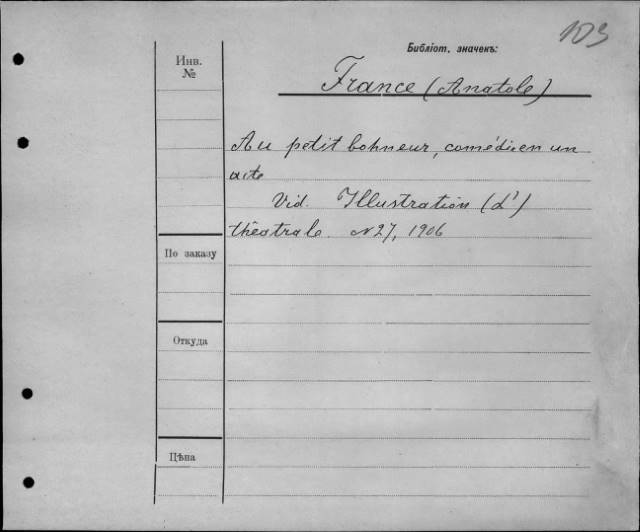 103
Библіот. значекъ:
Инв.
№
France (Anatole)
Au petit bohneur, comédie en un
acte
Vid. Illustration (L')
théatrale. N27, 1906
По заказу
Откуда
Цѣна